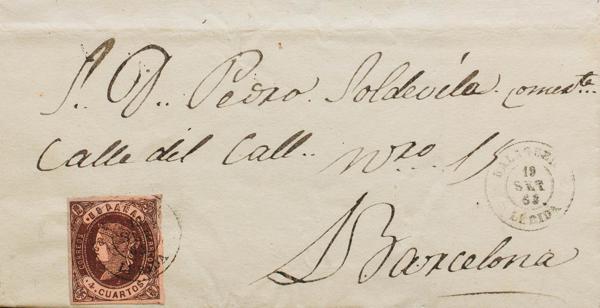 S. D. Pedro Soldevila comerte
Calle del Call nro 15
Barcelona
BALAGUER
19
SET
63
LERIDA
CORREOS ESPAÑA
4 CUARTOS